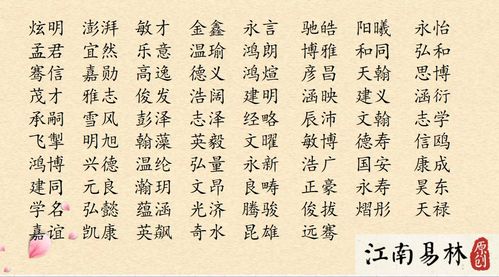 炫明 澎湃 敏才 金鑫 永言 驰皓 阳曦 永怡
孟君 宜然 乐意 温瑜 鸿朗 博雅 和同 弘和
骞信 嘉勋 高逸 德义 鸿煊 彦昌 天翰 思博
茂才 雅志 俊发 浩阔 建明 涵映 建义 涵衍
承嗣 雪风 彭泽 志泽 经略 辰沛 文翰 志学
飞掣 明旭 翰藻 英毅 文曜 敏博 德寿 信鸥
鸿博 兴德 温纶 弘量 永新 浩广 国安 康成
建同 元良 瀚玥 文昂 良畴 正豪 永寿 昊东
学名 弘懿 蕴涵 光济 腾骏 俊拔 熠彤 天禄
嘉谊 凯康 英飙 奇水 昆雄 远骞
江南易林
原创